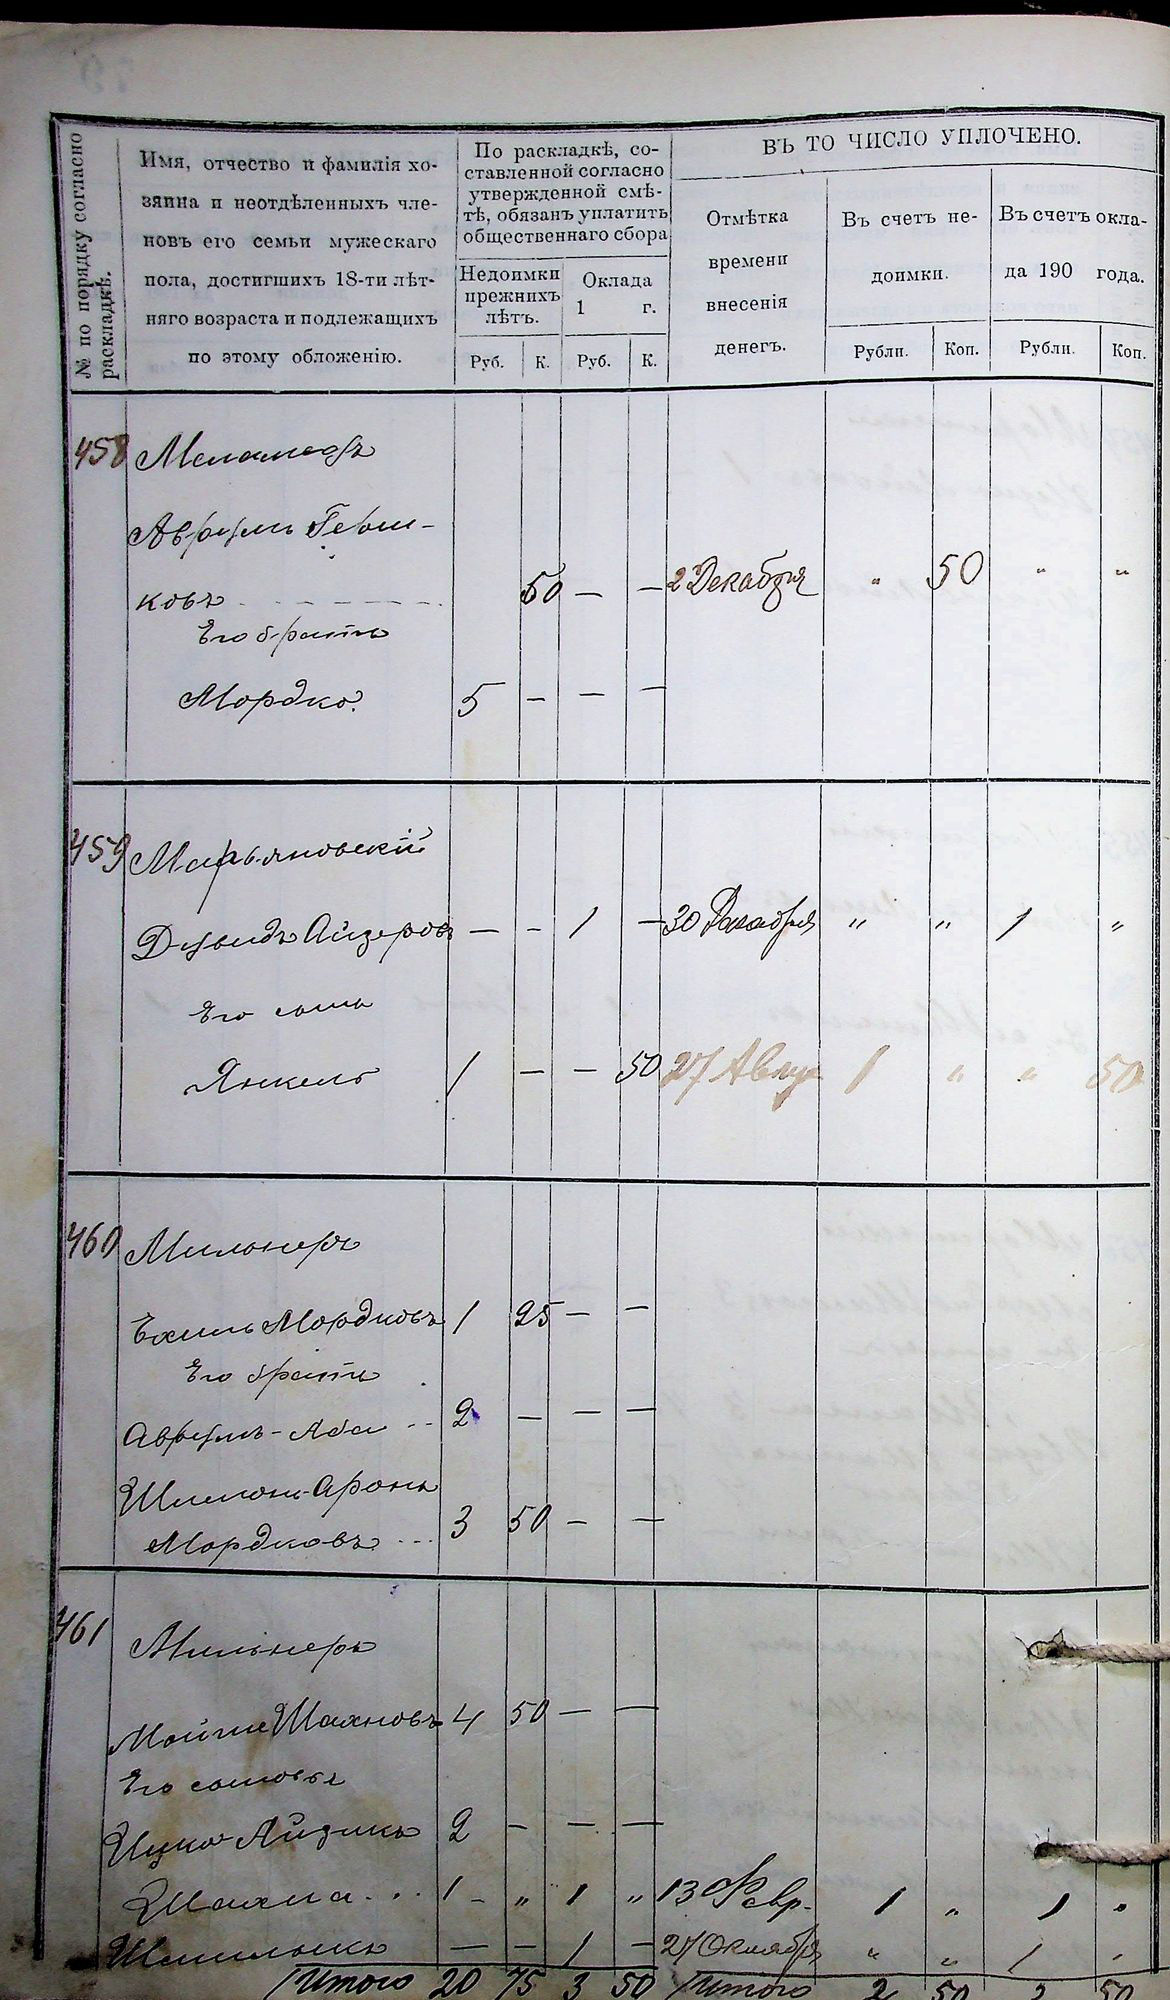 № по порядку согласно
раскладкѣ.
Имя, отчество и фамилія хо-
зяина и неотдѣленныхъ чле-
новъ его семьи мужескаго
пола, достигшихъ 18-ти лѣт-
няго возраста и подлежащихъ
по этому обложенію.
По раскладкѣ, со-
ставленной согласно
утвержденной смѣ-
тѣ, обязанъ уплатить
общественнаго сбора
Недоимки
прежнихъ
лѣтъ.
Оклада
1 г.
Руб. К. Руб. К.
ВЪ ТО ЧИСЛО УПЛОЧЕНО.
Отмѣтка
времени
внесенія
денегъ.
Въ счетъ не-
доимки.
Въ счетъ окла-
да 190 года.
Рубли. Коп. Рубли. Коп.
458 Меламедъ
Аврумъ Герш-
ковъ 50 — — 2 Декабря " 50 " "
Его братъ
Мордко. 5 — — —
459 Марьяновскій
Дувидъ Айзеровъ — — 1 — 30 Декабря " " 1 "
Его сынъ
Янкель 1 — — 50 27 Авгус 1 " " 50
460 Мильнеръ
Ехиль Мордковъ 1 25 — —
Его братъ
Аврумъ-Аба 2 — — —
Шимонъ-Аронъ
Мордковъ 3 50 — —
461 Мильнеръ
Мойше Шахновъ 4 50 — —
Его сыновья
Ицко-Айзикъ 2 — — —
Шахна 1 - " 1 " 13 Февр. 1 " 1 "
— — 1 — 27 Октября " " 1 "
Итого 20 75 3 50 Итого 2 50 3 50